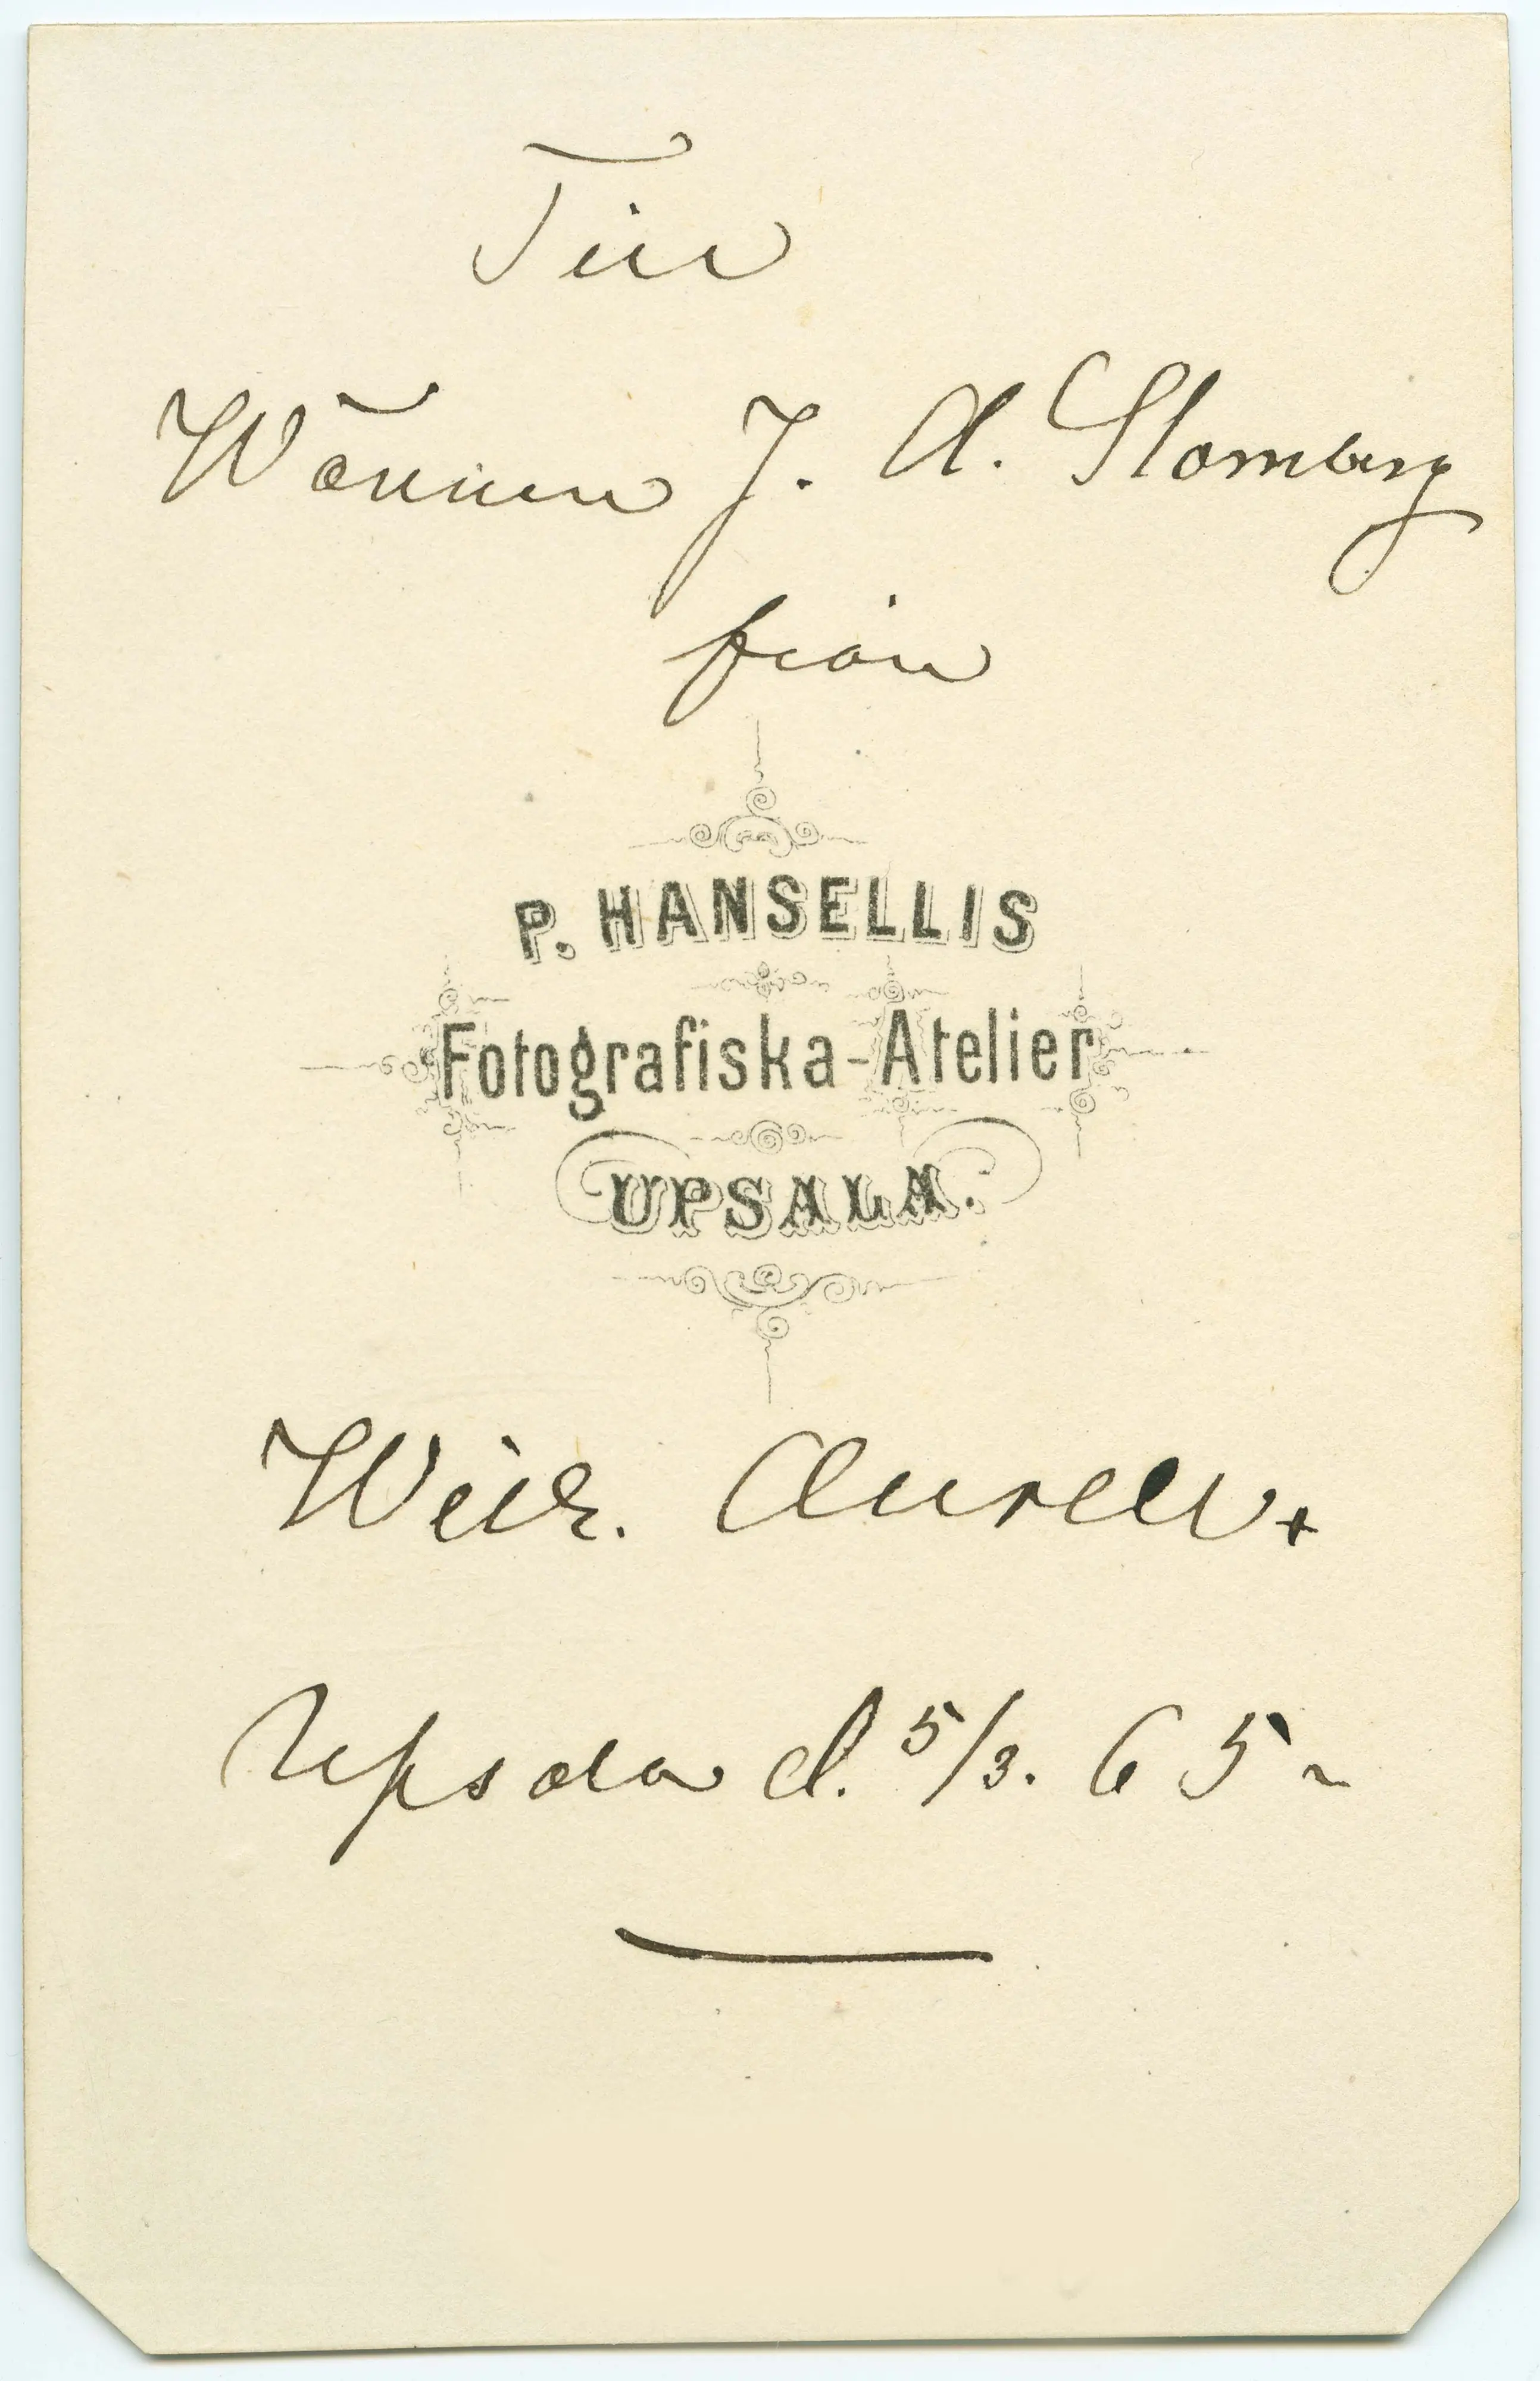 Till
Wännen J. A.
från
P. HANSELLIS
Fotografiska-Atelier
UPSALA.
Aurell.
Upsala d. 5/3. 65